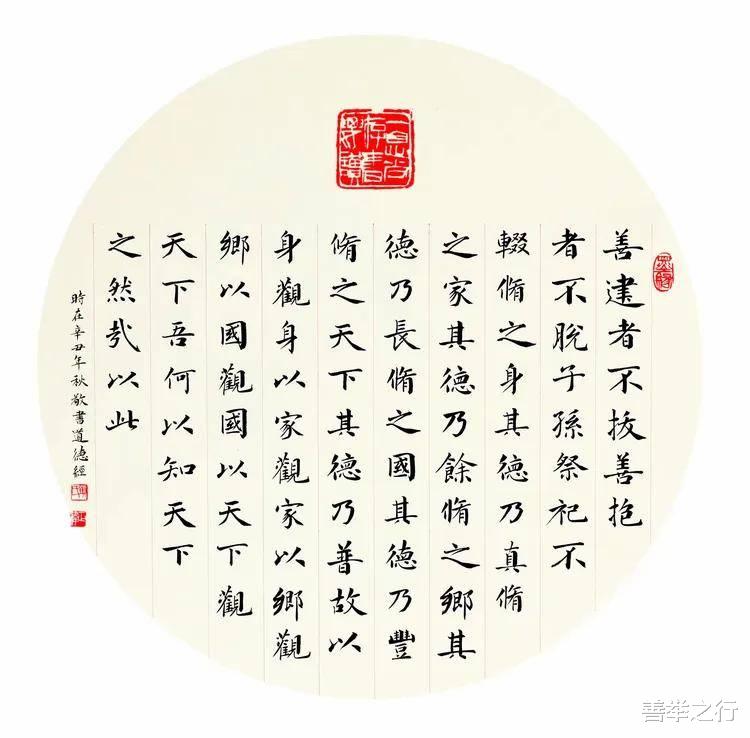 善建者不拔善抱
者不脫子孫祭祀不
輟脩之身其德乃真脩
之家其德乃餘脩之鄉其
德乃長脩之國其德乃豐
脩之天下其德乃普故以
身觀身以家觀家以鄉觀
鄉以國觀國以天下觀
天下吾何以知天下
之然哉以此
時在辛丑年秋敬書道德經
善举之行